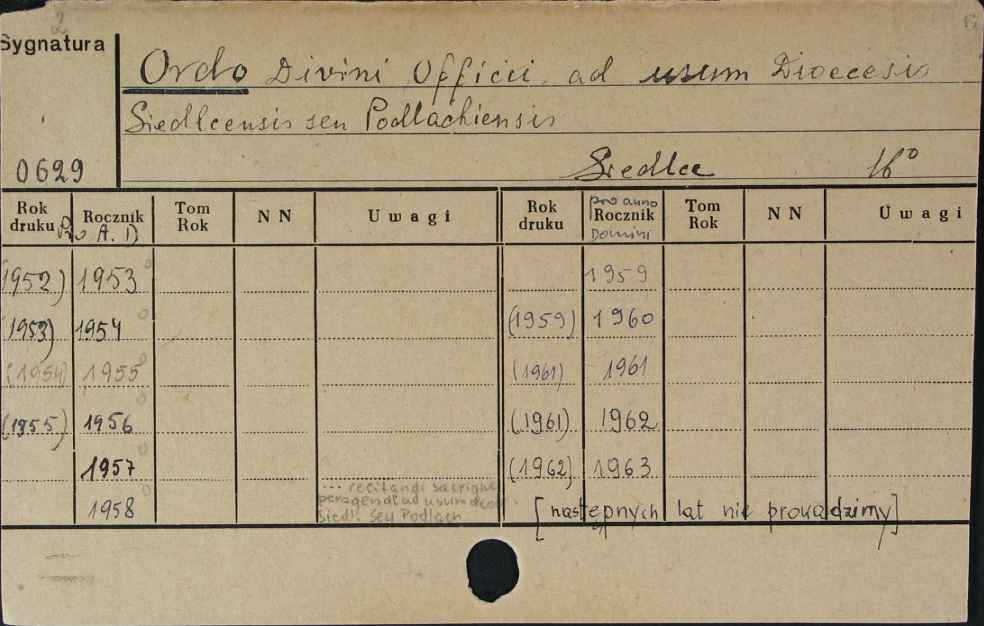 2
Sygnatura
Ordo Divini Officii ad usum Dioecesis
Siedlcensis seu Podlachiensis
0629 Siedlce 16°
Rok druku Rocznik Pro A. D Tom Rok NN Uwagi Rok druku pro anno Rocznik Domini Tom Rok NN Uwagi
(1952) 1953 1959
(1953) 1954 (1959) 1960
(1954) 1955 (1961) 1961
(1955) 1956 (1961) 1962
1957 (1962) 1963
... recitandi sacrique
1958 peragendi ad usum
Siedl. seu Podlach [następnych lat nie prowadzimy]